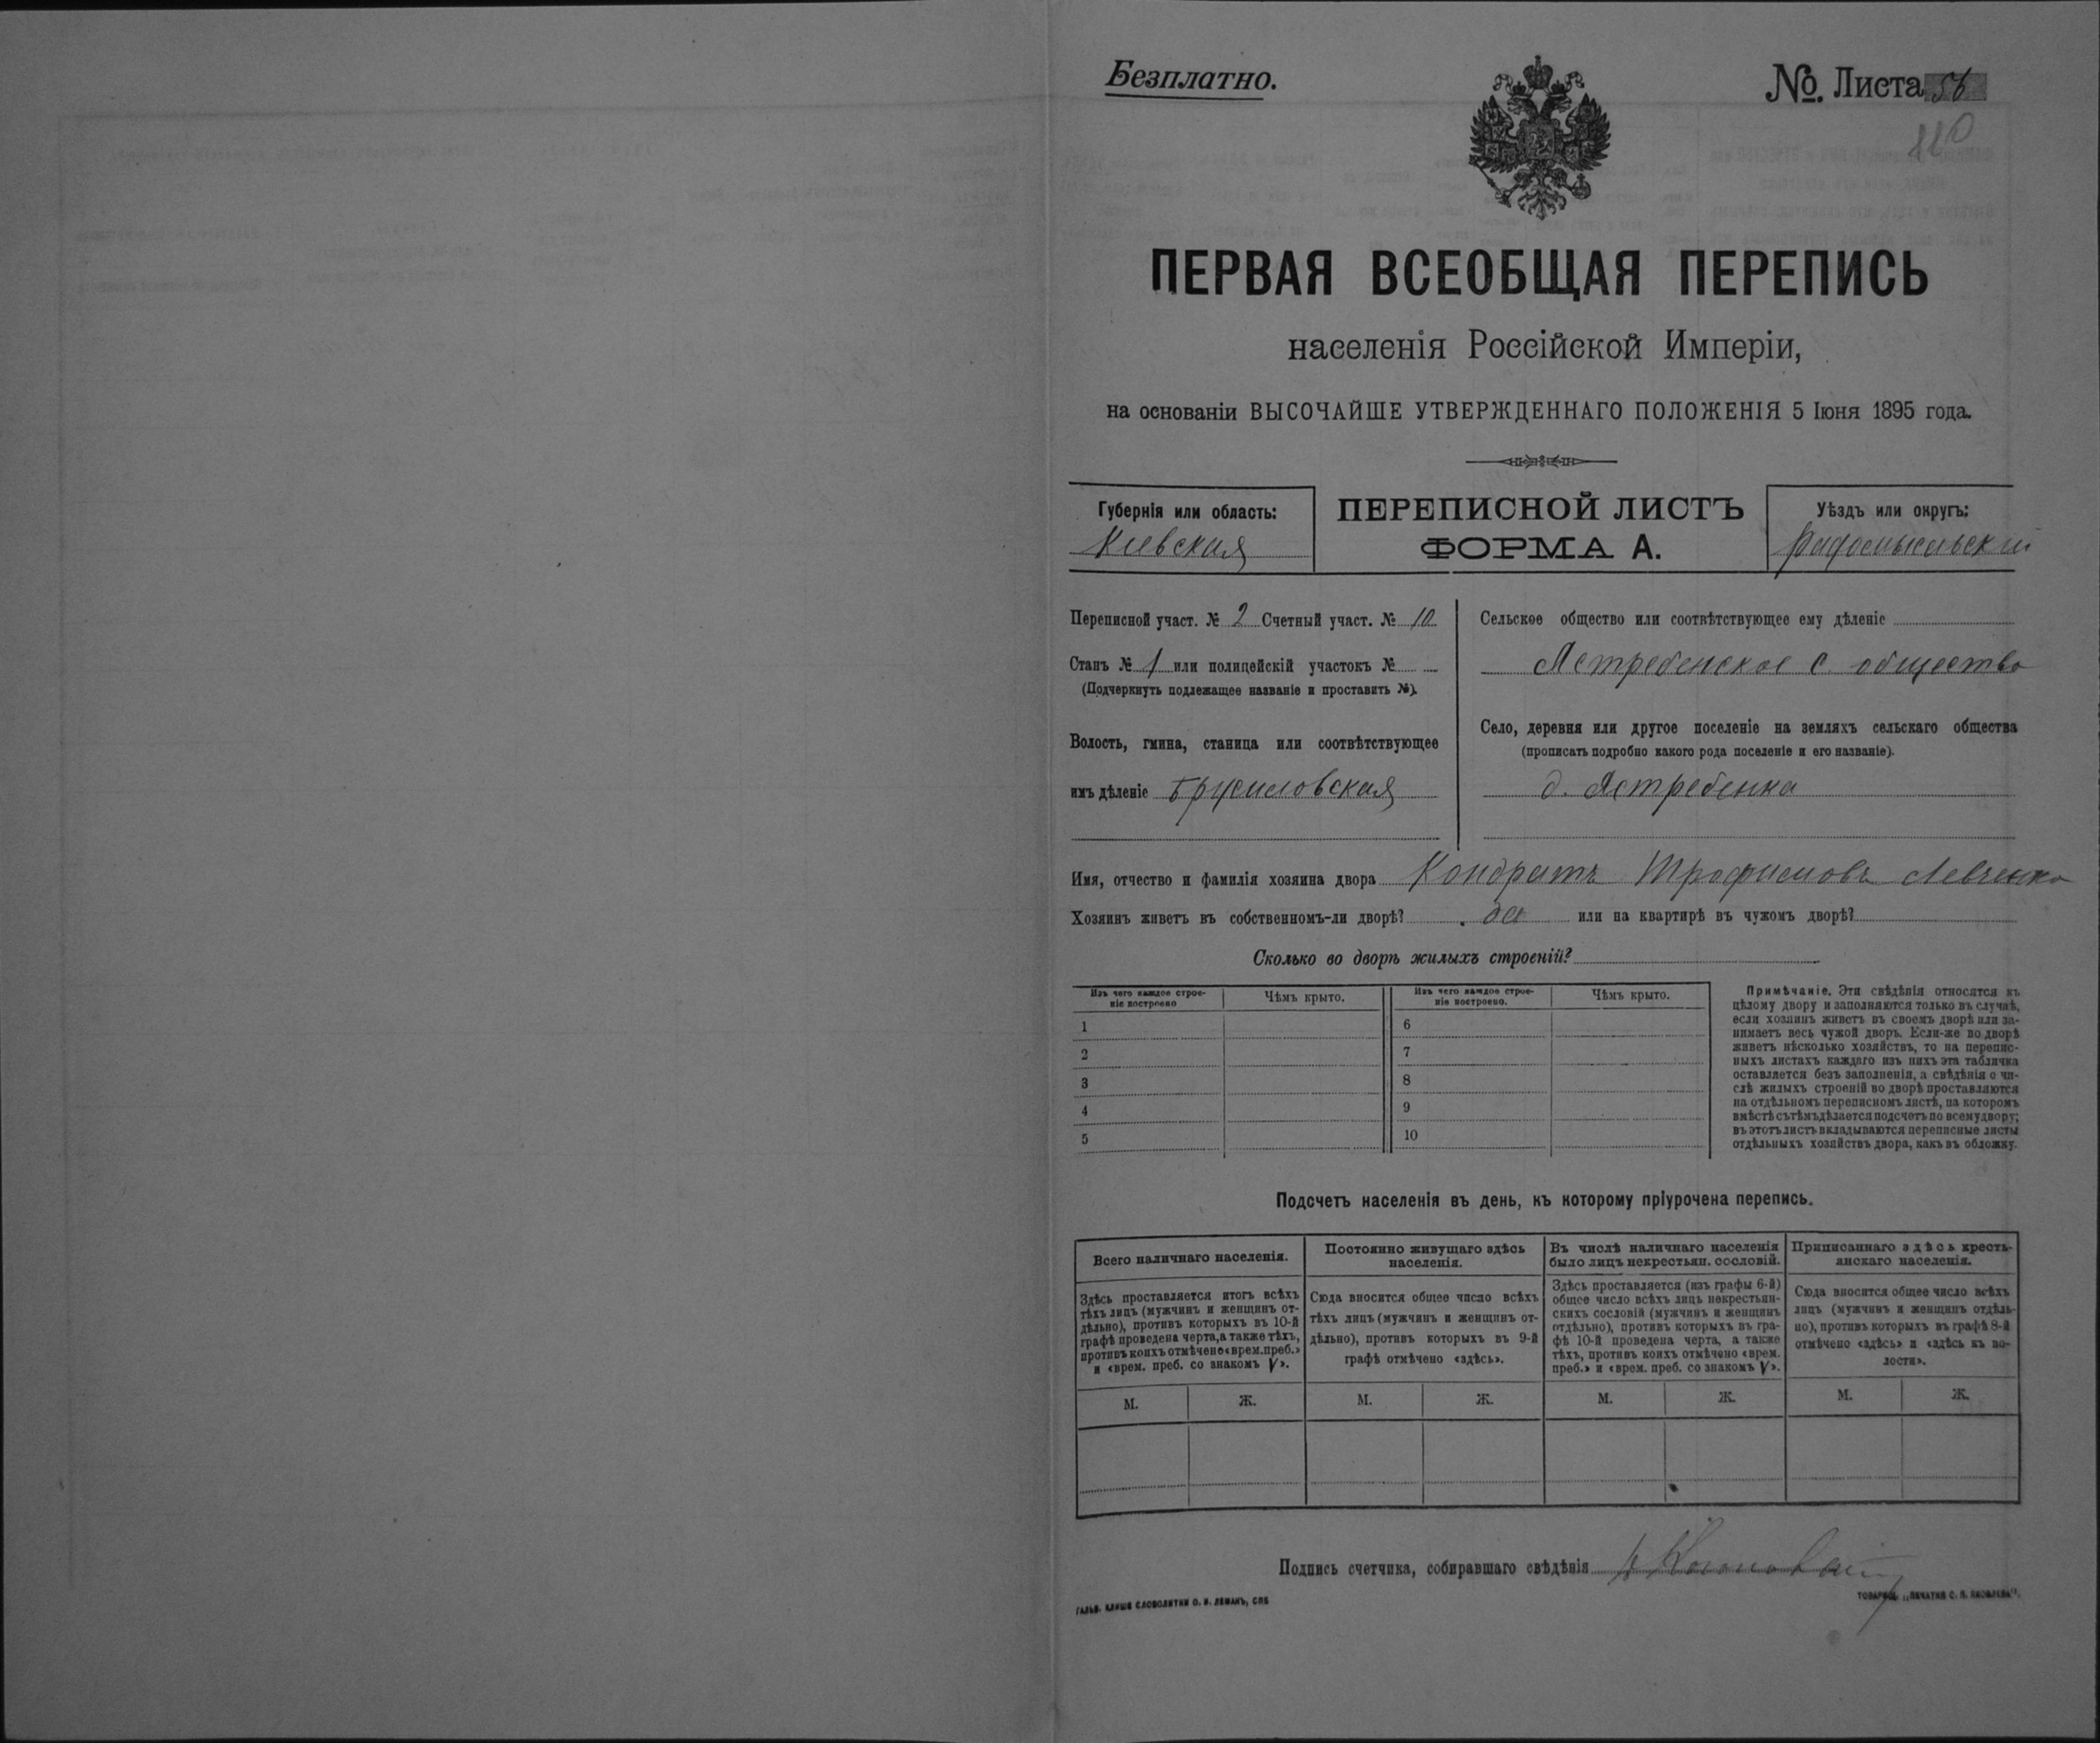 Безплатно.
№. Листа 56
110
ПЕРВАЯ ВСЕОБЩАЯ ПЕРЕПИСЬ
населенія Россійской Имперіи,
на основаніи ВЫСОЧАЙШЕ УТВЕРЖДЕННАГО ПОЛОЖЕНІЯ 5 Іюня 1895 года.
Губернія или область:
Киевская
ПЕРЕПИСНОЙ ЛИСТЪ
ФОРМА А.
Уѣздъ или округъ:
Радомысльский
Переписной участ. № 2 Счетный участ. № 10
Станъ № 1 или полицейскій участокъ №
(Подчеркнуть подлежащее названіе и проставить №).
Волость, гмина, станица или соотвѣтствующее
имъ дѣленіе Брусиловская
Сельское общество или соотвѣтствующее ему дѣленіе
Ястребенское с. общество
Село, деревня или другое поселеніе на земляхъ сельскаго общества
(прописать подробно какого рода поселеніе и его названіе).
д. Ястребенка
Имя, отчество и фамилія хозяина двора Кондратъ Трофимовъ Левченко
Хозяинъ живетъ въ собственномъ-ли дворѣ? да или на квартирѣ въ чужомъ дворѣ?
Сколько во дворѣ жилыхъ строеній?
Изъ чего каждое строе-
ніе построено
Чѣмъ крыто.
Изъ чего каждое строе-
ніе построено.
Чѣмъ крыто.
1
6
2
7
3
8
4
9
5
10
Примѣчаніе. Эти свѣдѣнія относятся къ
цѣлому двору и заполняются только въ случаѣ,
если хозяинъ живетъ въ своемъ дворѣ или за-
нимаетъ весь чужой дворъ. Если-же во дворѣ
живетъ нѣсколько хозяйствъ, то на перепис-
ныхъ листахъ каждаго изъ нихъ эта табличка
оставляется безъ заполненія, а свѣдѣнія о чи-
слѣ жилыхъ строеній во дворѣ проставляются
на отдѣльномъ переписномъ листѣ, на которомъ
вмѣстѣ съ тѣмъ дѣлается подсчетъ по всему двору;
въ этотъ листъ вкладываются переписные листы
отдѣльныхъ хозяйствъ двора, какъ въ обложку.
Подсчетъ населенія въ день, къ которому пріурочена перепись.
Всего наличнаго населенія.
Здѣсь проставляется итогъ всѣхъ
тѣхъ лицъ (мужчинъ и женщинъ от-
дѣльно), противъ которыхъ въ 10-й
графѣ проведена черта, а также тѣхъ,
противъ коихъ отмѣчено «врем. преб.»
и «врем. преб. со знакомъ V».
Постоянно живущаго здѣсь
населенія.
Сюда вносится общее число всѣхъ
тѣхъ лицъ (мужчинъ и женщинъ от-
дѣльно), противъ которыхъ въ 9-й
графѣ отмѣчено «здѣсь».
Въ числѣ наличнаго населенія
было лицъ некрестьян. сословій.
Здѣсь проставляется (изъ графы 6-й)
общее число всѣхъ лицъ некрестьян-
скихъ сословій (мужчинъ и женщинъ
отдѣльно), противъ которыхъ въ гра-
фѣ 10-й проведена черта, а также
тѣхъ, противъ коихъ отмѣчено «врем.
преб.» и «врем. преб. со знакомъ V».
Приписаннаго здѣсь кресть-
янскаго населенія.
Сюда вносится общее число всѣхъ
лицъ (мужчинъ и женщинъ отдѣль-
но), противъ которыхъ въ графѣ 8-й
отмѣчено «здѣсь» и «здѣсь къ во-
лости».
М. Ж. М. Ж. М. Ж. М. Ж.
Подпись счетчика, собиравшаго свѣдѣнія
ГАЛЬВ. КЛИШЕ СЛОВОЛИТНИ О. И. ЛЕМАНЪ, СПБ
ТОВАРИЩ. „ПЕЧАТНЯ С. П. ЯКОВЛЕВА".